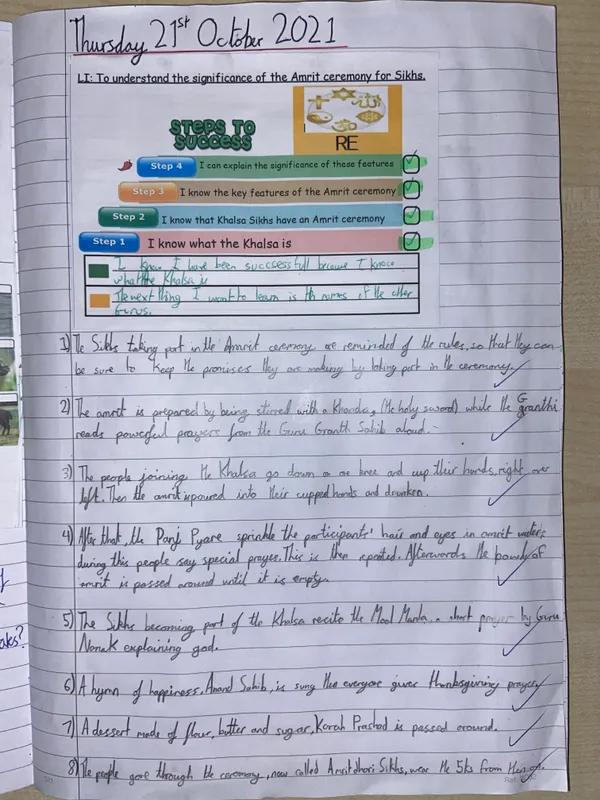 Thursday 21st October 2021
LI: To understand the significance of the Amrit ceremony for Sikhs.
STEPS TO
SUCCESS
RE
Step 4 I can explain the significance of these features
Step 3 I know the key features of the Amrit ceremony
Step 2 I know that Khalsa Sikhs have an Amrit ceremony
Step 1 I know what the Khalsa is
I know I have been succsessfull because I know
what the Khalsa is
The next thing I want to learn is the names of the other
Gurus.
1) The Sikhs taking part in the Amrit ceremony are reminded of the rules, so that they can
be sure to keep the promises they are making by taking part in the ceremony.
2) The amrit is prepared by being stirred with a Khanda, (the holy sword) while the Granthi
reads powerful prayers from the Guru Granth Sahib aloud.
3) The people joining the Khalsa go down on one knee and cup their hands, right over
left. Then the amrit is poured into their cupped hands and drunken.
4) After that, the Panj Pyare sprinkle the participants' hair and eyes in amrit water,
during this people say special prayer. This is then repeated. Afterwords the bowl of
amrit is passed around until it is empty.
5) The Sikhs becoming part of the Khalsa recite the Mool Manta, a short prayer by Guru
Nanak explaining god.
6) A hymn of happiness, Anand Sahib, is sung the everyone gives thanksgiving prayer
7) A dessert made of flour, butter and sugar, Karah Prashad is passed around.
8) The people gone through the ceremony, now called Amritdhari Sikhs, wear the 5ks from then on.